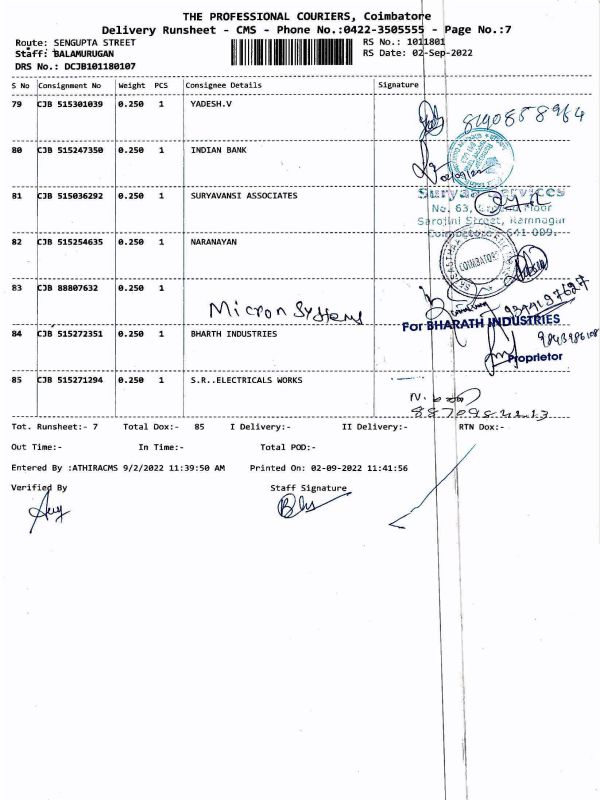 THE PROFESSIONAL COURIERS, Coimbatore
Delivery Runsheet - CMS - Phone No.:0422-3505555 - Page No.:7
Route: SENGUPTA STREET
RS No.: 1011801
Staff: BALAMURUGAN
RS Date: 02-Sep-2022
DRS No.: DCJB101180107
S No Consignment No Weight PCS Consignee Details Signature
79 CJB 515301039 0.250 1 YADESH.V
80 CJB 515247350 0.250 1 INDIAN BANK
81 CJB 515036292 0.250 1 SURYAVANSI ASSOCIATES
No. 63, Ground Floor
Sarojini Street, Ramnagar
Coimbatore 641 009.
82 CJB 515254635 0.250 1 NARANAYAN
COIMBATORE
83 CJB 88807632 0.250 1
Micron Systems
For BHARATH INDUSTRIES
84 CJB 515272351 0.250 1 BHARTH INDUSTRIES
Proprietor
85 CJB 515271294 0.250 1 S.R..ELECTRICALS WORKS
Tot. Runsheet:- 7 Total Dox:- 85 I Delivery:- II Delivery:- RTN Dox:-
Out Time:- In Time:- Total POD:-
Entered By :ATHIRACMS 9/2/2022 11:39:50 AM Printed On: 02-09-2022 11:41:56
Verified By Staff Signature